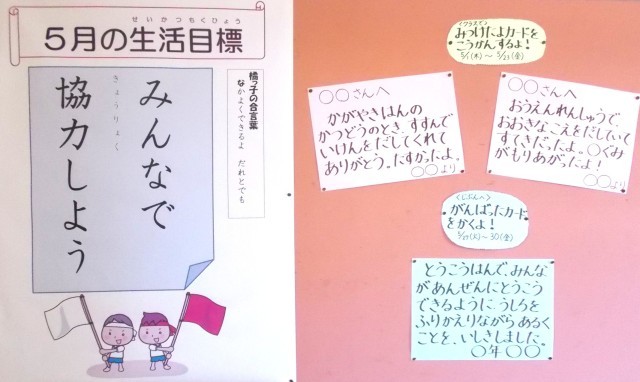 せいかつもくひょう
5月の生活目標
橘っ子の合言葉
なかよくできるよ だれとでも
みんなで
きょうりょく
協力しよう
〈クラスで〉
みつけたよカードを
こうかんするよ!
5/1(木)〜5/23(金)
○○さんへ
かがやきはんの
かつどうのとき、すすんで
いけんをだしてくれて
ありがとう。たすかったよ。
○○より
○○さんへ
おうえんれんしゅうで、
おおきなこえをだしてい
すてきだったよ。○くみ
がもりあがったよ!
○○より
〈じぶんへ〉
がんばったカード
をかくよ!
5/27(火)〜30(金)
とうこうはんで、みんな
があんぜんにとうこう
できるようにうしろを
ふりかえりながらあるく
ことを、いしきしました。
○年 ○○